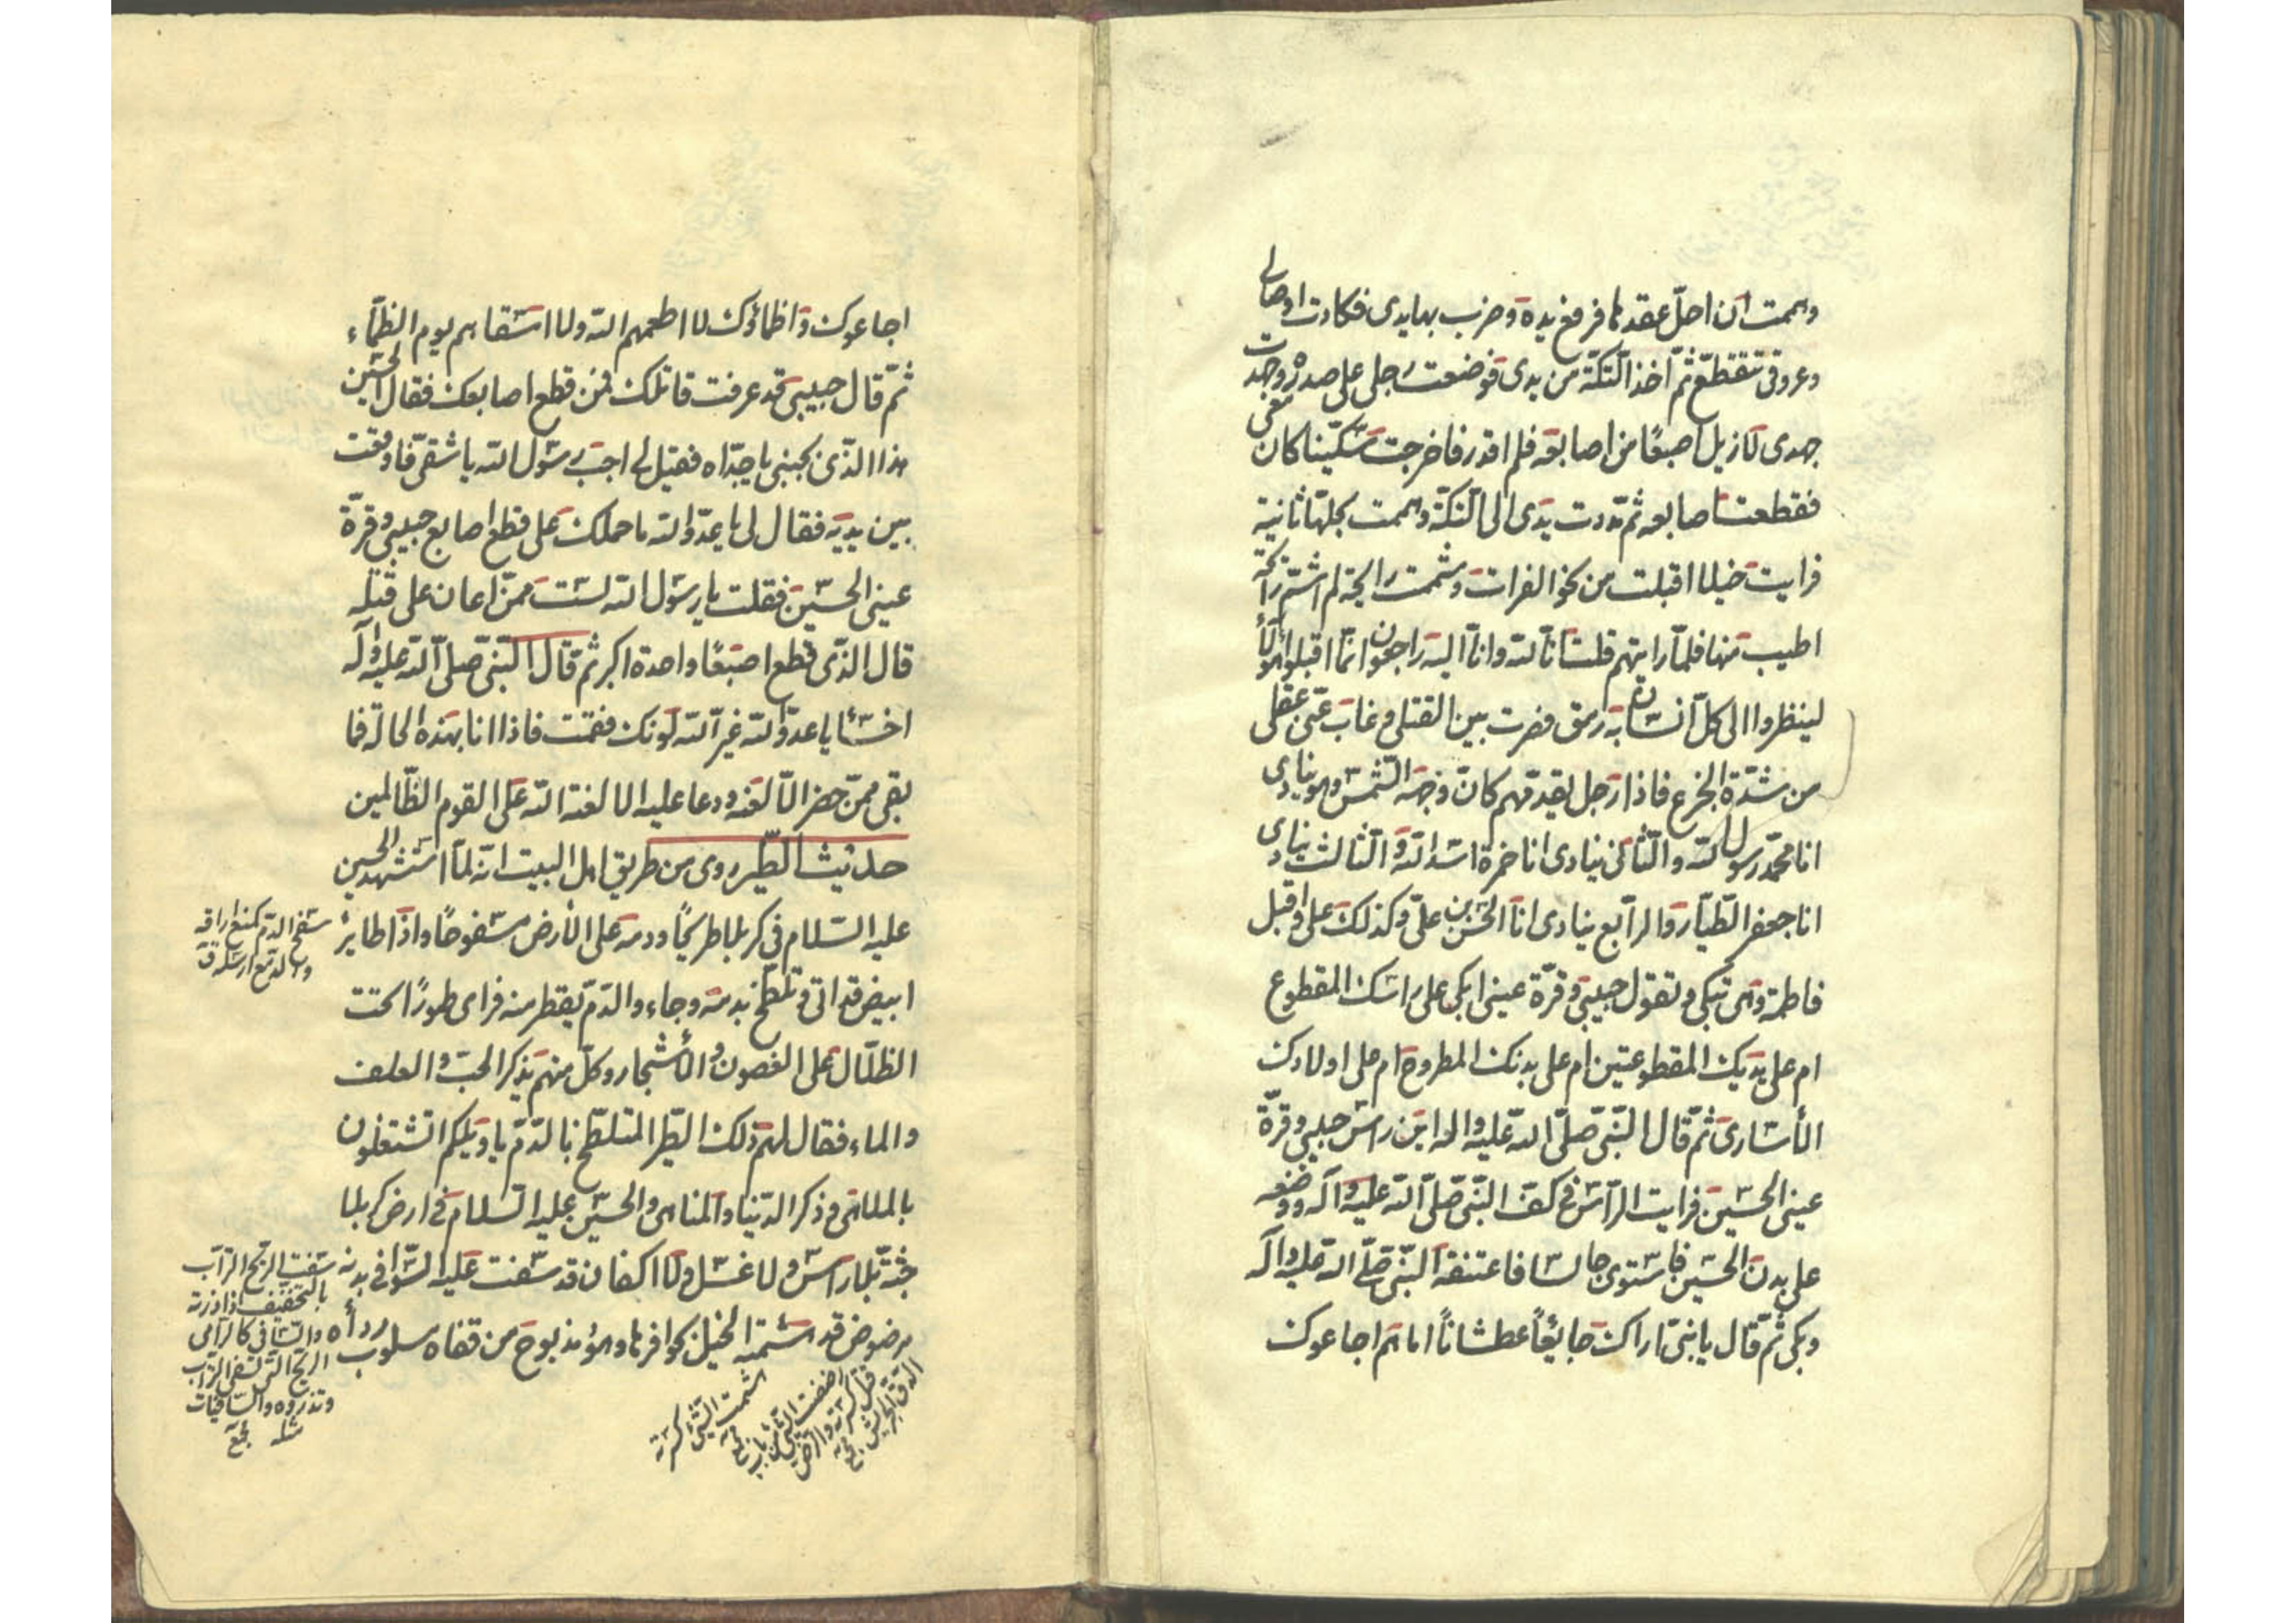 وهممت ان احلّ عقدها فرفع يده وضرب بها يدى فكادت اوصالى
وعروقى تتقطّع ثمّ اخذ التكّة من يدى فوضعت رجلى على صدره وجهدت
جهدى لازيل اصبعًا من اصابعه فلم اقدر فاخرجت سكّينا كان معى
فقطعت اصابعه ثمّ مددت يدى الى التكّة وهممت بحلّها ثانية
فرايت خيلا اقبلت من نحو الفرات وشممت رايحة لم اشمّ رائحة
اطيب منها فلمّا رايتهم قلت انّا لله وانّا اليه راجعون انّما اقبلوا هؤلاء
لينظروا الى كلّ انسان به رمق فصرت بين القتلى وغاب عنّى عقلى
من شدّة الجزع فاذا رجل يقدمهم كانّ وجهه الشّمس وهو ينادى
انا محمّد رسول الله والثّانى ينادى انا حمزة اسد الله والثّالث ينادى
انا جعفر الطّيّار والرّابع ينادى انا الحسن بن علىّ وكذلك على واقبل
فاطمة وهى تبكى وتقول حبيبى وقرّة عينى ابكى على راسك المقطوع
ام على يديك المقطوعتين ام على بدنك المطروح ام على اولادك
الأسارى ثمّ قال النّبى صلّى الله عليه واله اين راس حبيبى وقرّة
عينى الحسين فرايت الرّأس فى كفّ النّبى صلّى الله عليه وآله ووضعه
على بدن الحسين فاستوى جالسا فاعتنقه النّبى صلّى الله عليه وآله
وبكى ثمّ قال يا بنىّ اراك جايعًا عطشانًا اما هم اجاعوك
اجاعوك واظمأوك لا اطعمهم الله ولا اسقاهم يوم الظّمآء
ثمّ قال حبيبى قد عرفت قاتلك فمن قطع اصابعك فقال الحسين
هذا الّذى بجنبى يا جدّاه فقيل لى اجب رسول الله يا شقىّ فاوقفت
بين يديه فقال لى يا عدوّ الله ما حملك على قطع اصابع حبيبى وقرّة
عينى الحسين فقلت يا رسول الله لست ممّن اعان على قتله
قال الذّى قطع اصبعًا واحدة اكبر ثم قال النّبى صلّى الله عليه وآله
اخسأ يا عدوّ الله غيّر الله لونك فقمت فاذا انا بهذه الحالة فما
بقى ممّن حضر الّا لعنه ودعا عليه الا لعنة الله على القوم الظّالمين
حديث الطّير روى من طريق اهل البيت انّه لمّا استشهد الحسين
عليه السّلام فى كربلا طريحًا ودمه على الأرض مسفوحًا واذا طاير
ابيض قد اتى وتلطّخ بدمه وجاء والدّم يقطر منه فراى طيورًا تحت
الظلّال على الغصون والأشجار وكلّ منهم يذكر الحبّ والعلف
والماء فقال لهم ذلك الطّير المتلطّخ بالدّم يا ويلكم اتشتغلون
بالملاهى وذكر الدّنيا والمناهى والحسين عليه السّلام فى ارض كربلا
جثّة بلا راس ولا غسل ولا اكفان قد سفت عليه السّوافى بدنه
مرضوض قد هشمته الخيل بحوافرها وهو مذبوح من قفاه مسلوب رداه
سفح الدّم كمنع اراقه
والدّمع ارسله ق
سفت الريح التراب
بالتخفيف اذا ذرته
والسّافى كالرامى
الريح التى تسفى التراب
وتذروه والسافيات
مثله مجمع
هشمت الشّئ كسرته